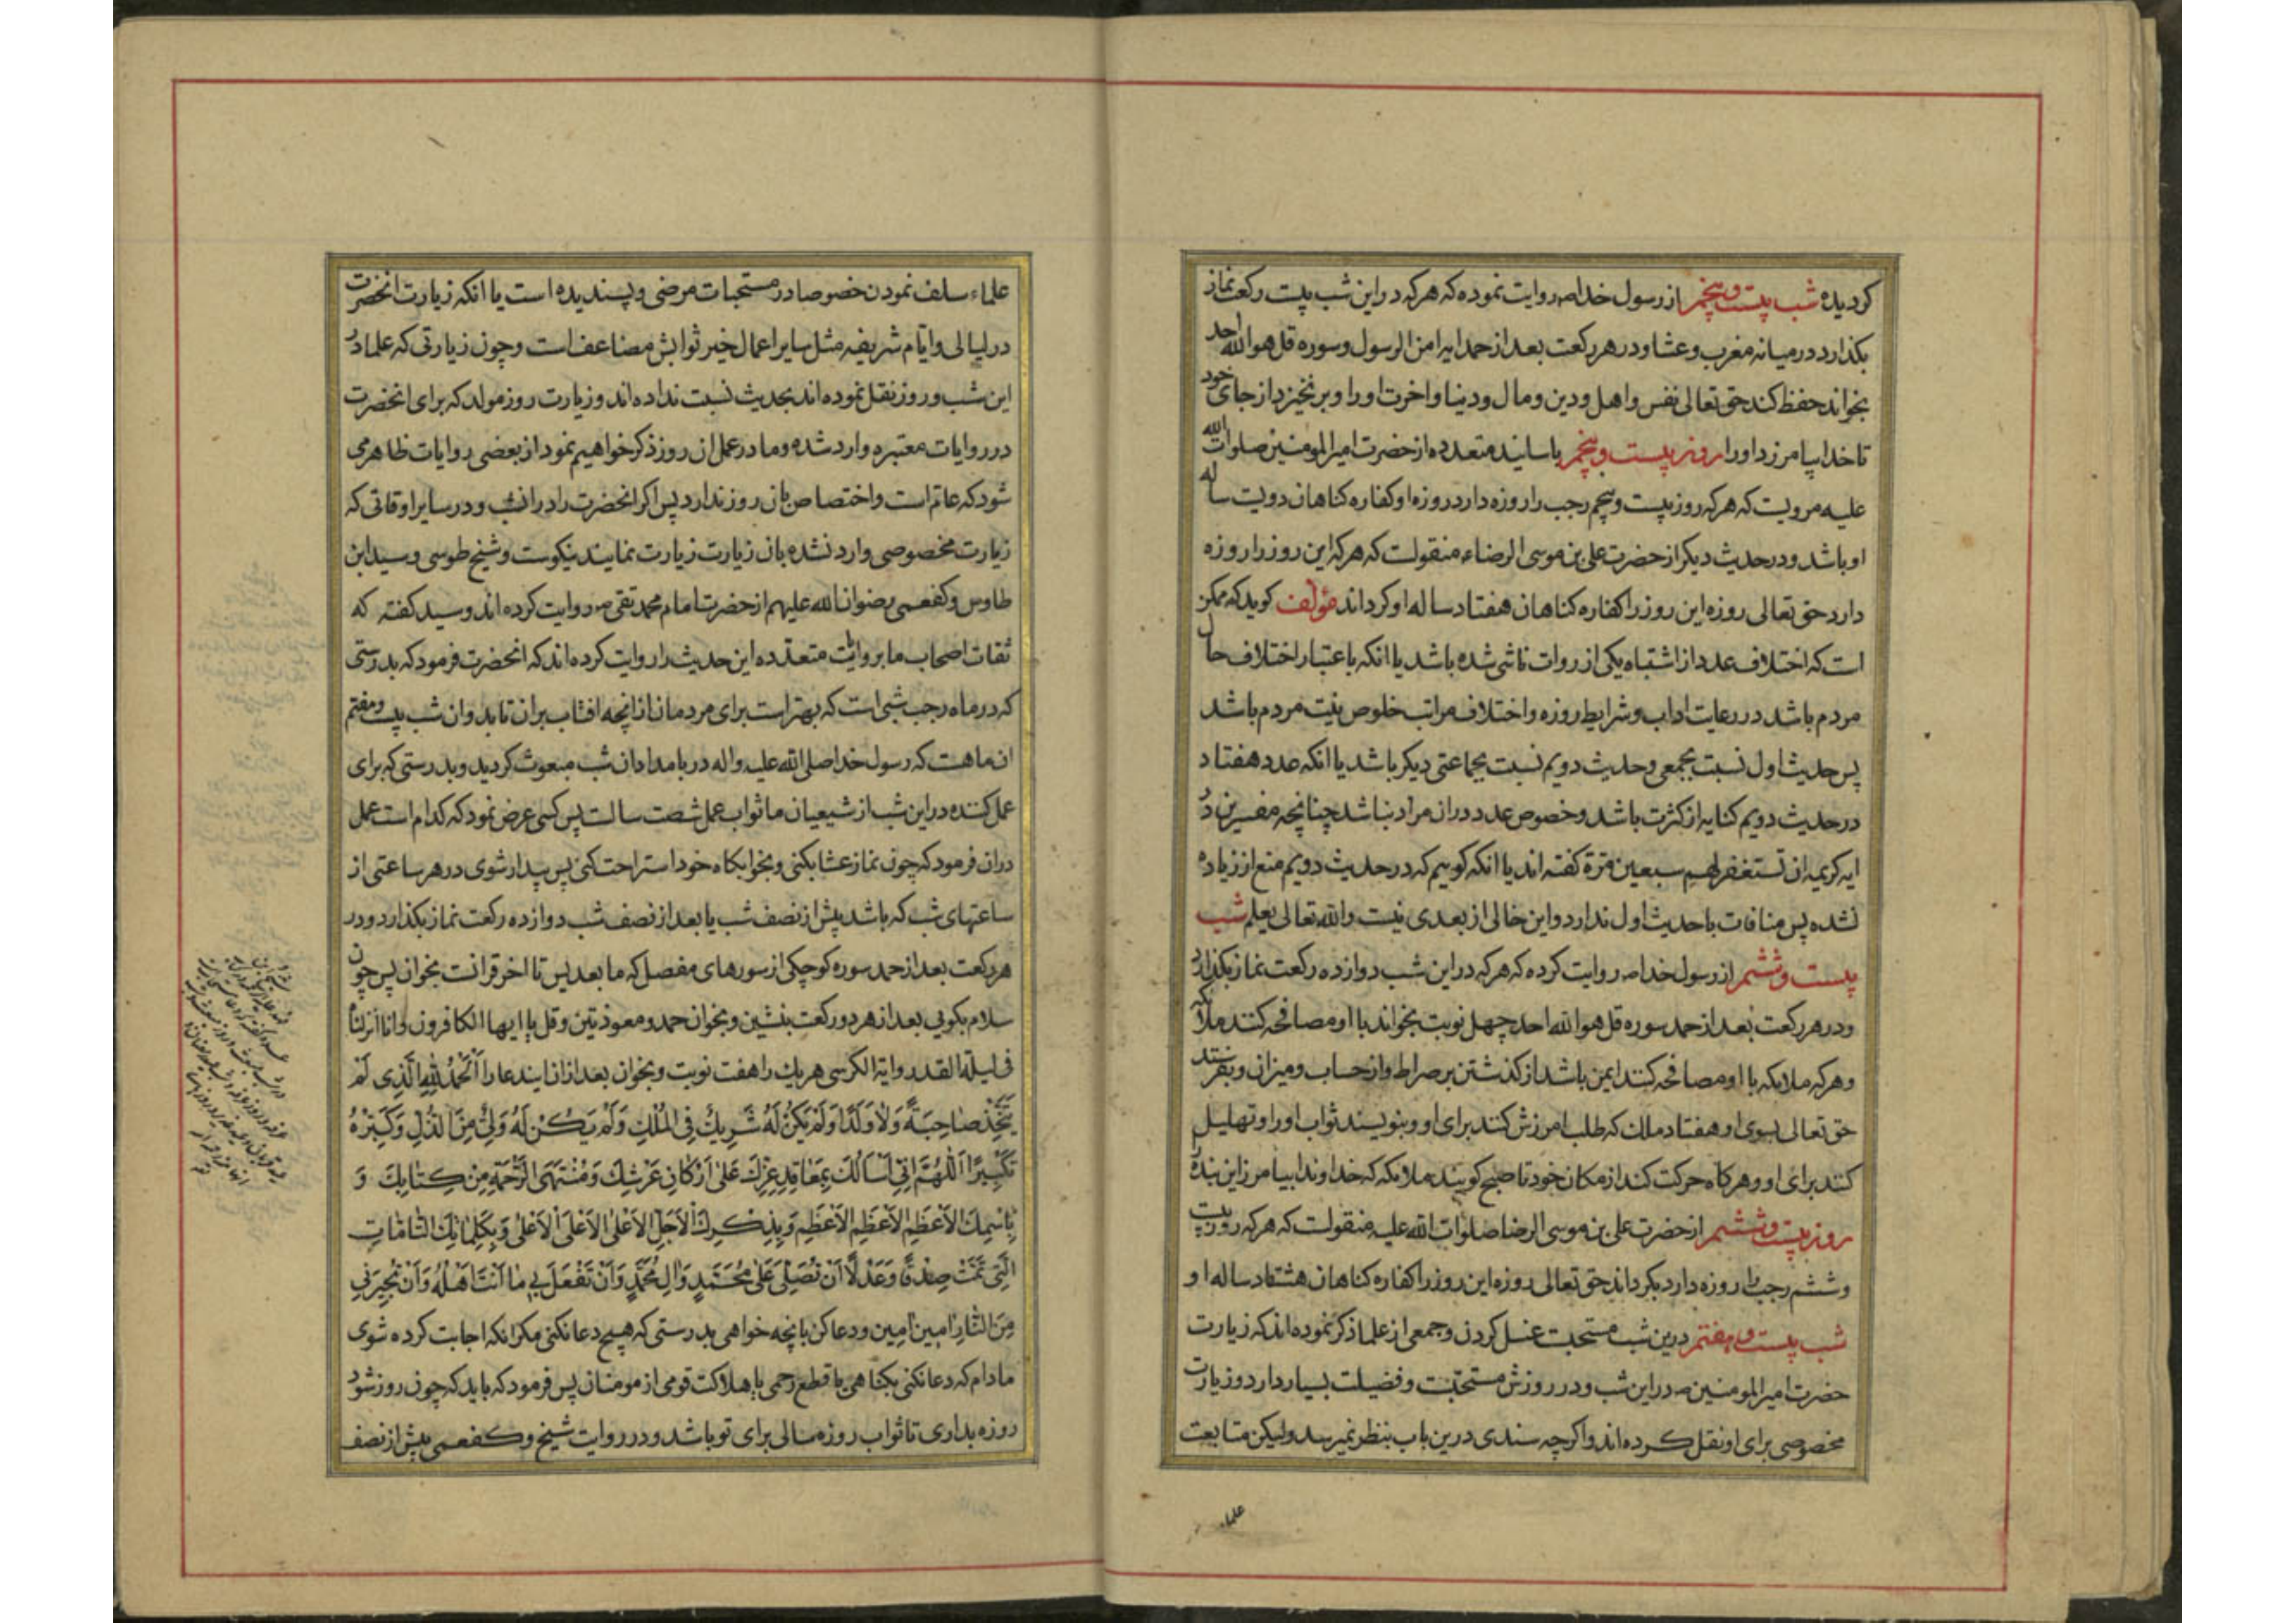 کردیده شب بیست و پنجم از رسول خدا ص روایت نموده که هرکه در این شب بیست رکعت نماز
بکذارد در میانه مغرب و عشا و در هر رکعت بعد از حمد ایه امن الرسول و سوره قل هو الله احد
بخواند حفظ کند حق تعالی نفس و اهل و دین و مال و دنیا و اخرت او را و برنخیزد از جای خود
تا خدا بیامرزد او را روز بیست و پنجم باسانید متعدده از حضرت امیر المومنین صلوات الله
علیه مرویست که هرکه روز بیست و پنجم رجب را روزه دارد روزه او کفاره کناهان دویست ساله
او باشد و در حدیث دیکر از حضرت علی بن موسی الرضاء منقولست که هرکه این روز را روزه
دارد حق تعالی روزه این روز را کفاره کناهان هفتاد ساله او کرداند مؤلف کوید که ممکن
است که اختلاف عدد از اشتباه یکی از روات ناشی شده باشد یا انکه باعتبار اختلاف حال
مردم باشد در رعایت اداب و شرایط روزه و اختلاف مراتب خلوص نیت مردم باشد
پس حدیث اول نسبت بجمعی و حدیث دویم نسبت بجماعتی دیکر باشد یا انکه عدد هفتاد
در حدیث دویم کنایه از کثرت باشد و خصوص عدد دران مراد نباشد چنانچه مفسرین در
ایه کریمه ان تستغفر لهم سبعین مرة کفته اند یا انکه کوییم که در حدیث دویم منع از زیاده
نشده پس منافات با حدیث اول ندارد و این خالی از بعدی نیست والله تعالی یعلم شب
بیست و ششم از رسول خدا ص روایت کرده که هرکه در این شب دوازده رکعت نماز بکذارد
و در هر رکعت بعد از حمد سوره قل هو الله احد چهل نوبت بخواند با او مصافحه کنند ملائکه
و هرکه ملائکه با او مصافحه کنند ایمن باشد از کذشتن بر صراط و از حساب و میزان و بفرستد
حق تعالی بسوی او هفتاد ملک که طلب امرزش کنند برای او و بنویسند ثواب او را و تهلیل
کنند برای او و هرکاه حرکت کند از مکان خود تا صبح کویند ملائکه که خداوندا بیامرز این بنده را
روز بیست و ششم از حضرت علی بن موسی الرضا صلوات الله علیه منقولست که هرکه روز بیست
و ششم رجب را روزه دارد بکرداند حق تعالی روزه این روز را کفاره کناهان هشتاد ساله او
شب بیست و هفتم درین شب مستحبست غسل کردن و جمعی از علما ذکر نموده اند که زیارت
حضرت امیر المومنین ص در این شب و در روزش مستحبّست و فضیلت بسیار دارد و زیارت
مخصوصی برای او نقل کرده اند و اکرچه سندی درین باب بنظر نمیرسد ولیکن متابعت
علماء
علماء سلف نمودن خصوصا در مستحبات مرضی و پسندیده است یا انکه زیارت انحضرت
در لیالی و ایّام شریفه مثل سایر اعمال خیر ثوابش مضاعف است و چون زیارتی که علما در
این شب و روز نقل نموده اند بحدیث نسبت نداده اند و زیارت روز مولد که برای انحضرت
در روایات معتبره وارد شده و ما در عمل ان روز ذکر خواهیم نمود از بعضی روایات ظاهر می
شود که عام است و اختصاص بان روز ندارد پس اکر انحضرت را در انشب و در سایر اوقاتی که
زیارت مخصوصی وارد نشده بان زیارت زیارت نمایند نیکوست و شیخ طوسی و سید ابن
طاوس و کفعمی رضوان الله علیهم از حضرت امام محمد تقی ص روایت کرده اند و سید کفته که
ثقات اصحاب ما بروایت متعدّده این حدیث را روایت کرده اند که انحضرت فرمود که بدرستی
که در ماه رجب شبی است که بهتر است برای مردمان از انچه افتاب بران تابد و ان شب بیست و هفتم
ان ماهست که رسول خدا صلی الله علیه واله در بامداد ان شب مبعوث کردید و بدرستی که برای
عمل کننده در این شب از شیعیان ما ثواب عمل شصت سالست پس کسی عرض نمود که کدام است عمل
دران فرمود که چون نماز عشا بکنی و بخوابکاه خود استراحت کنی پس بیدار شوی در هر ساعتی از
ساعتهای شب که باشد پیش از نصف شب یا بعد از نصف شب دوازده رکعت نماز بکذار د و در
هر رکعت بعد از حمد سوره کوچکی از سورهای مفصل که ما بعد یس تا اخر قرانت بخوان پس چون
سلام بکویی بعد از هر دو رکعت بنشین و بخوان حمد و معوذتین و قل یا ایها الکافرون و انا انزلناه
فی لیلة القدر و ایة الکرسی هریک را هفت نوبت و بخوان بعد از ان ایندعا را اَلْحَمْدُ لِلّٰهِ الَّذِی لَمْ
یَتَّخِذْ صَاحِبَةً وَلَا وَلَدًا وَلَمْ یَکُنْ لَهُ شَرِیكٌ فِی الْمُلْكِ وَلَمْ یَکُنْ لَهُ وَلِیٌّ مِنَ الذُّلِّ وَکَبِّرْهُ
تَکْبِیرًا اَللّٰهُمَّ اِنِّی اَسْأَلُكَ بِمَعَاقِدِ عِزِّكَ عَلَی اَرْکَانِ عَرْشِكَ وَمُنْتَهَی الرَّحْمَةِ مِنْ کِتَابِكَ وَ
بِاسْمِكَ الْاَعْظَمِ الْاَعْظَمِ الْاَعْظَمِ وَبِذِکْرِكَ الْاَجَلِّ الْاَعْلَی الْاَعْلَی الْاَعْلَی وَبِکَلِمَاتِكَ التَّامَّاتِ
الَّتِی تَمَّتْ صِدْقًا وَعَدْلًا اَنْ تُصَلِّیَ عَلَی مُحَمَّدٍ وَاٰلِ مُحَمَّدٍ وَاَنْ تَفْعَلَ بِی مَا اَنْتَ اَهْلُهُ وَاَنْ تُجِیرَنِی
مِنَ النَّارِ امین امین و دعا کن بانچه خواهی بدرستی که هیچ دعا نکنی مکر انکه اجابت کرده شوی
مادام که دعا نکنی بکناهی یا قطع رحمی یا هلاکت قومی از مومنان پس فرمود که باید که چون روز شود
روزه بداری تا ثواب روزه سالی برای تو باشد و در روایت شیخ و کفعمی پیش از نصف